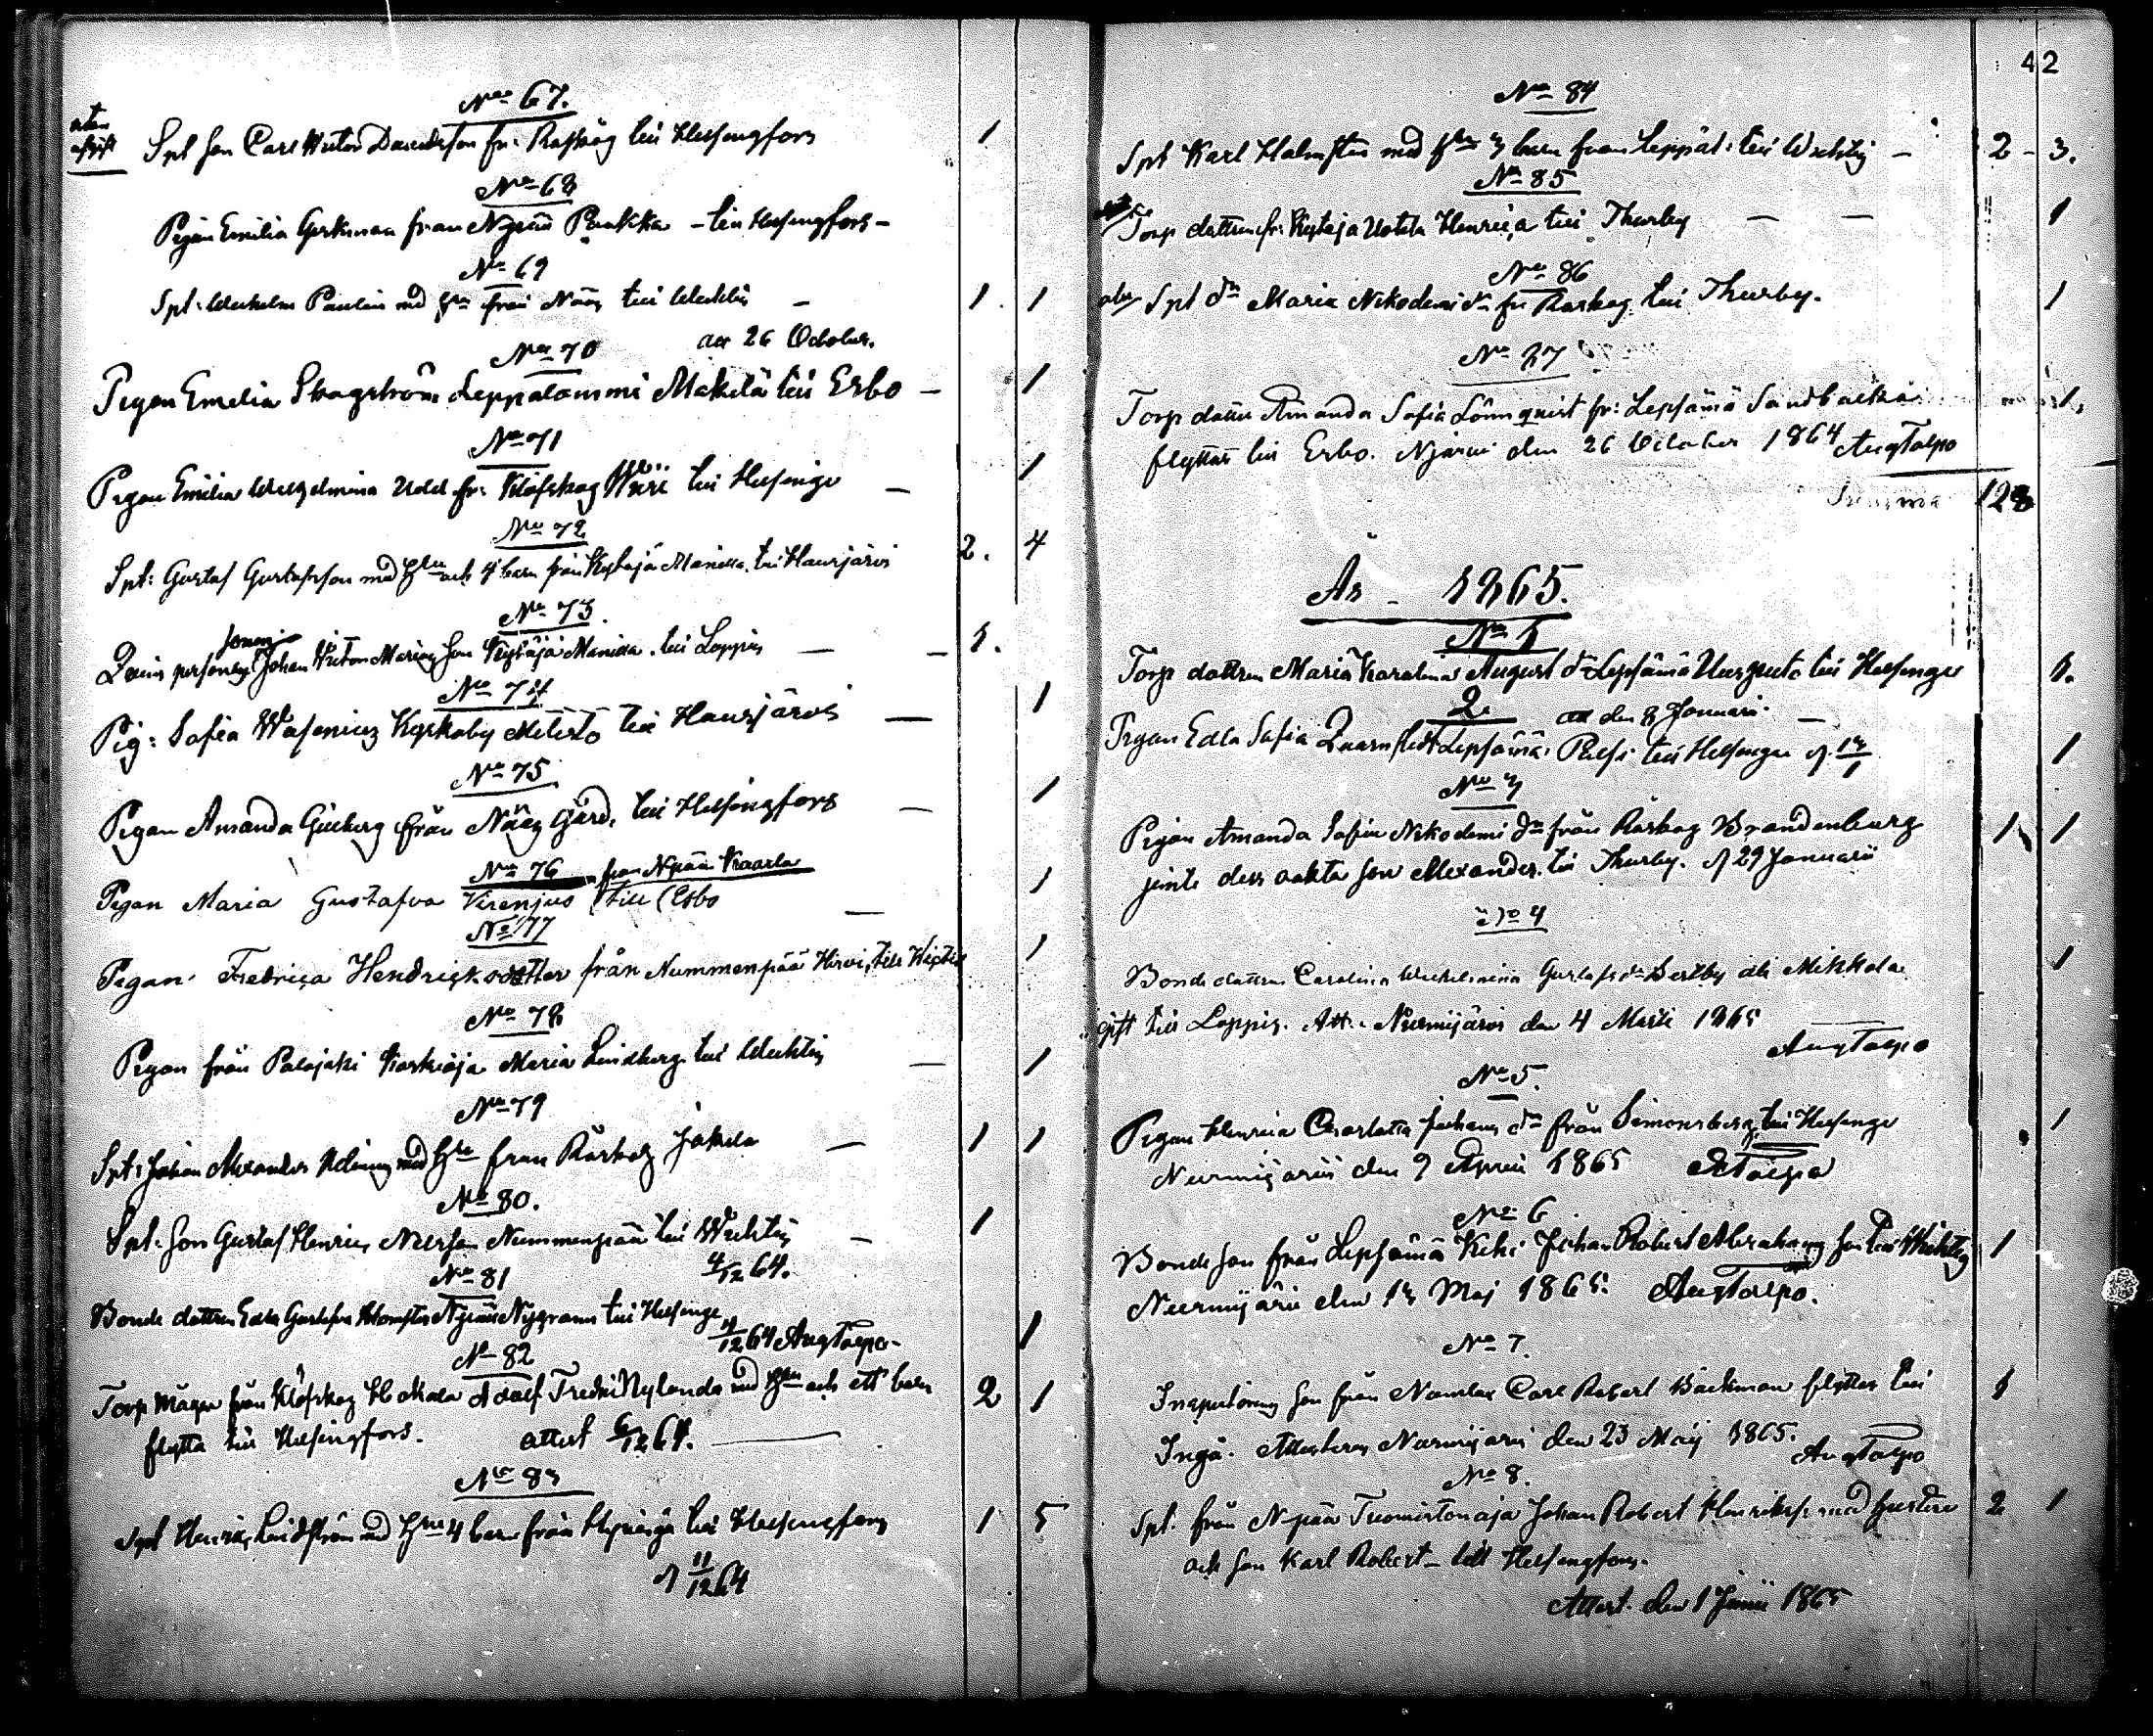 No 67.
utan
afgift
Spt son Carl Victor Davidsson fr. Råskog till Helsingfors 1
No 68
Pigan Emilia Gerkman från Npää Pukkka - till Helsingfors -
No 69
Spt: Wilhelm Paulin med Hu från Nääs till Wichtis - 1. 1
No 70 att 26 October.
Pigan Emelia Skogström Leppälammi Mäkilä till Esbo - 1
No 71
Pigan Emilia Wilhelmina Udd fr. Klöfskog till Helsinge - 1
No 72
Spt: Gustaf Gustafsson med Hu och 4 barn från Kytäjä Manilla till Hausjärvi 2. 4
No 73.
Johan Victor Marias son Kytäjä Manilla. till Loppis - 1.
No 74
Pig: Sofia Wasenius Kyrkoby till Hausjärvi - 1
No 75
Pigan Amanda från Nääs Gård, till Helsingfors - 1
No 76 från Npää Kaarla
Pigan Maria Gustafva Virenjus till Esbo - 1
No 77
Pigan Fredrica Hendricksdotter från Nummenpää Hirvi, till 1
No 78
Pigan från Palojoki Maria Lindberg till Wichtis - 1
No 79
Spt: Johan Alexander med Hu från Röskog Jakela - 1 1
No 80.
Spt. Son Gustaf Henric Nummenpää till Wichtis - 1
4/12 64.
No 81
Bonde dottren Edla Gustafva till Helsinge 1
4/12 64 Aug Talpo
No 82
Torp Mågen från Klöfskog Adolf Fredric Nylander med Hu och ett barn 2 1
flytta till Helsingfors. attest 6/12 64.
No 83
Spt Henric Lindström med Hu 4 barn från till Helsingfors 1 5
d 11/12 64
42
No 84
Spt Karl Holmsten med Hu 3 barn från Leppäl: till Wichtis - 2 - 3.
No 85
Torp dottren fr. Kytäjä Uotila Henrica till Thusby - - 1
No 86
Spt dr Maria Nikodemi dr fr Raskog till Thusby. 1
No 87
Torp dotter Amanda Sofia Lönnqvist fr: Lepsämä Sandbacka 1
flyttar till Esbo. Njärvi den 26 October 1864 Aug Talpo
Summa 128
År - 1865.
No 1
Torp dottren Maria Karolina August dr Lepsämä till Helsinge 1.
2 att den 8 Januari.
Pigan Edla Sofia Qvarnstedt Lepsämä till Helsinge d. 13/1 1
No 3
Pigan Amanda Sofia Nikodemi dr från Röskog Brandenburg 1 1
jemte dess oäkta son Alexander till Thusby. d 29 Januarii
No 4
Bonde dottren Carolina Wilhelmina Gustafs dr Perttby ali Mikkola 1
gift till Loppis. Att: Nurmijärvi den 4 Martii 1865
Aug Talpo
No 5.
Pigan Henrica Charlotta Johans dr från Simonsberg till Helsinge 1
Nurmijärvi den 9 April 1865 Talpo
No 6
Bonde son från Lepsämä Johan Robert Abrahams son till Wichtis 1
Nurmijärvi den 13 Maj 1865. Aug Talpo.
No 7.
Inspectorens son från Numlax Carl Robert Bäckman flyttar till 1
Ingå. Attesteras Nurmijärvi den 23 Maij 1865. Aug Talpo
No 8.
Spt. från Npää Tuomistonoja Johan Robert Henrikss. med hustru 2 1
och son Karl Robert - till Helsingfors.
Attest. den 1 Junii 1865